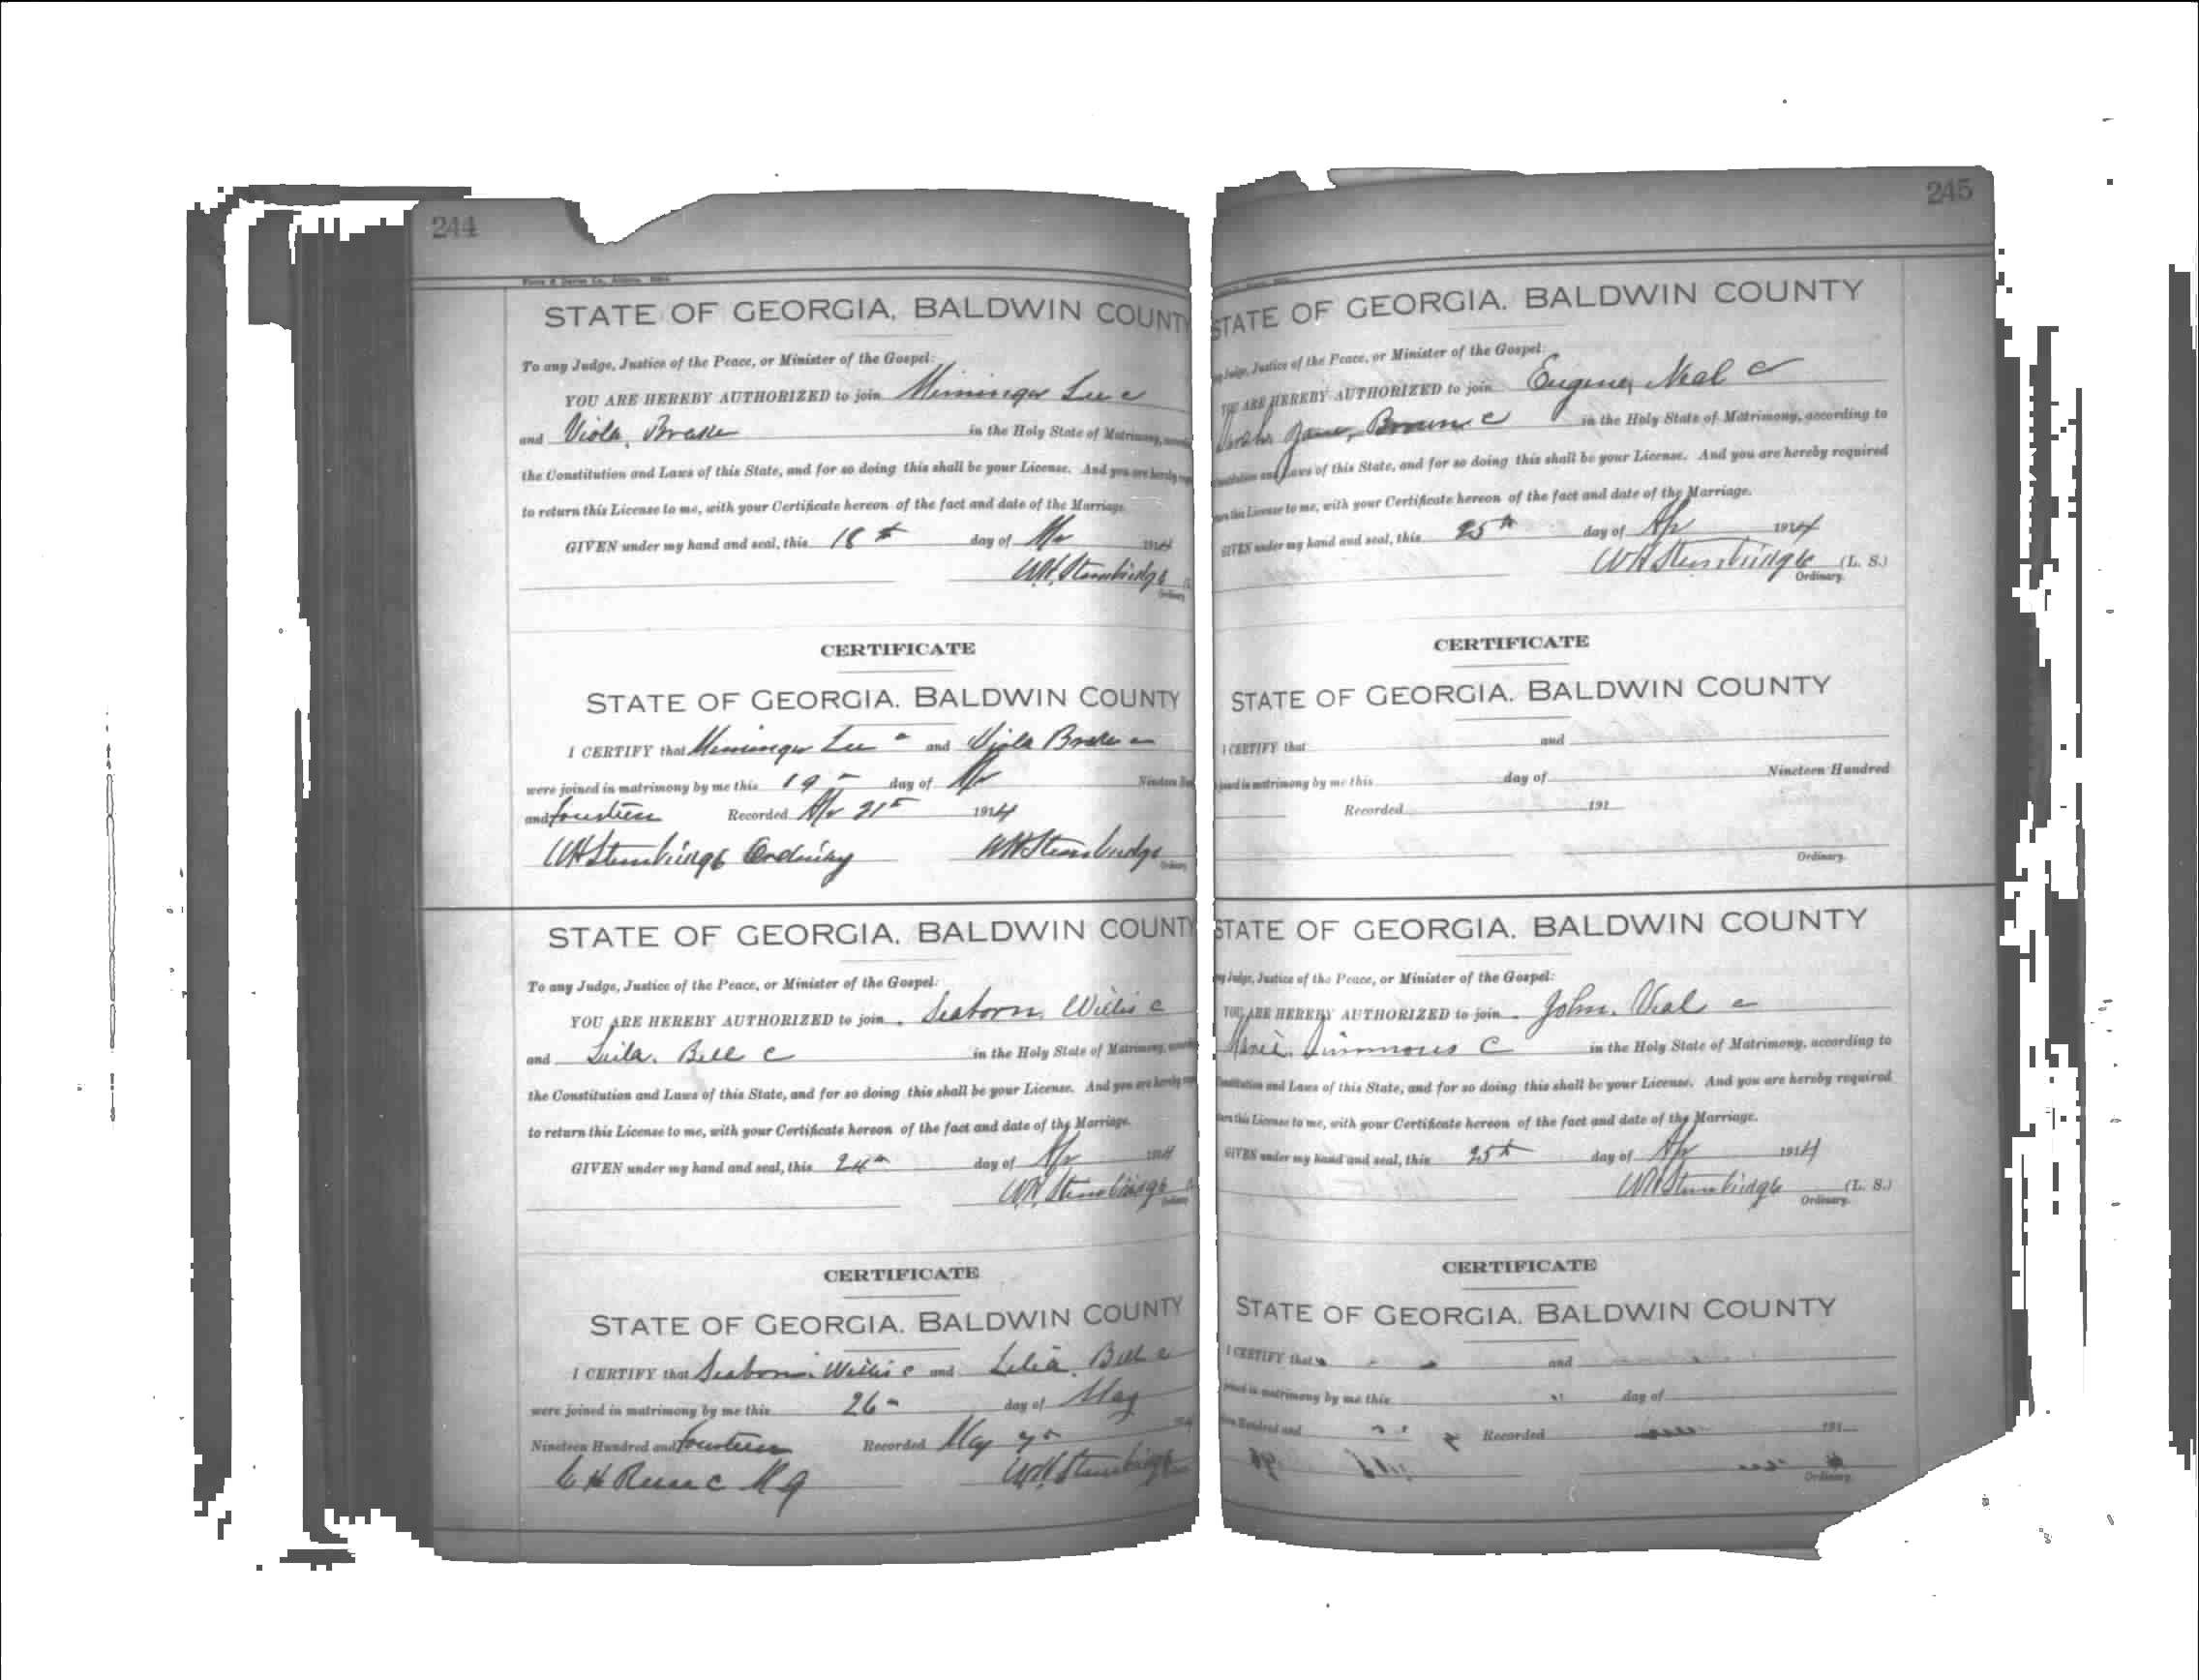 244
STATE OF GEORGIA, BALDWIN COUNTY
To any Judge, Justice of the Peace, or Minister of the Gospel:
YOU ARE HEREBY AUTHORIZED to join Lee c
and Viola in the Holy State of Matrimony,
the Constitution and Laws of this State, and for so doing this shall be your License. And you are hereby
to return this License to me, with your Certificate hereon of the fact and date of the Marriage.
GIVEN under my hand and seal, this 18th day of Apr 1914
W.H. Stembridge
Ordinary
CERTIFICATE
STATE OF GEORGIA. BALDWIN COUNTY
I CERTIFY that Lee c and Viola
were joined in matrimony by me this 19 day of Apr Nineteen
and fourteen Recorded Apr 21st 1914
WH Stembridge Ordinary WH Stembridge
Ordinary
STATE OF GEORGIA. BALDWIN COUNTY
To any Judge, Justice of the Peace, or Minister of the Gospel:
YOU ARE HEREBY AUTHORIZED to join Seaborn Willis c
and Leila. Bell c in the Holy State of Matrimony,
the Constitution and Laws of this State, and for so doing this shall be your License. And you are hereby
to return this License to me, with your Certificate hereon of the fact and date of the Marriage.
GIVEN under my hand and seal, this 24th day of Apr 1914
W.H. Stembridge
CERTIFICATE
STATE OF GEORGIA. BALDWIN COUNTY
I CERTIFY that Seaborn Willis c and Lelia. Bell c
were joined in matrimony by me this 26 day of May
Nineteen Hundred and fourteen Recorded May
W.H. Stembridge
245
STATE OF GEORGIA. BALDWIN COUNTY
Judge, Justice of the Peace, or Minister of the Gospel:
YOU ARE HEREBY AUTHORIZED to join Eugene Neal c
Brown c in the Holy State of Matrimony, according to
and Laws of this State, and for so doing this shall be your License. And you are hereby required
this License to me, with your Certificate hereon of the fact and date of the Marriage.
GIVEN under my hand and seal, this 25th day of Apr 1914
WH Stembridge (L. S.)
Ordinary.
CERTIFICATE
STATE OF GEORGIA. BALDWIN COUNTY
I CERTIFY that and
joined in matrimony by me this day of Nineteen Hundred
Recorded 191
Ordinary.
STATE OF GEORGIA. BALDWIN COUNTY
Judge, Justice of the Peace, or Minister of the Gospel:
YOU ARE HEREBY AUTHORIZED to join John. Veal c
Simmons C in the Holy State of Matrimony, according to
and Laws of this State, and for so doing this shall be your License. And you are hereby required
this License to me, with your Certificate hereon of the fact and date of the Marriage.
GIVEN under my hand and seal, this 25th day of Apr 1914
WH Stembridge (L. S.)
Ordinary.
CERTIFICATE
STATE OF GEORGIA. BALDWIN COUNTY
I CERTIFY that and
joined in matrimony by me this day of
Hundred and Recorded 191
Ordinary.